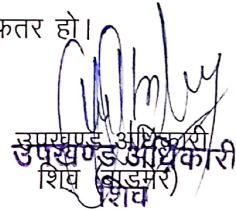 कतर हो।
उपखण्ड अधिकारी
उपखण्ड अधिकारी
शिव (बाडमेर)
शिव